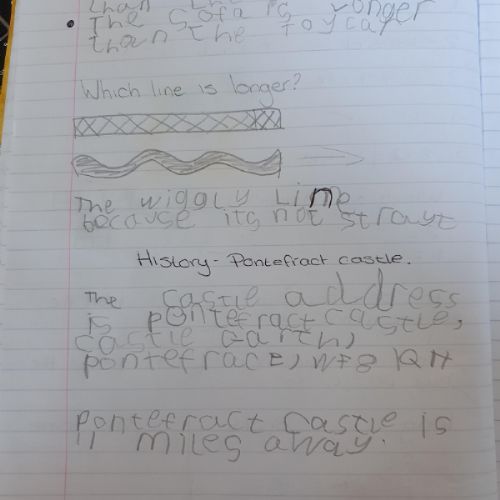 than the longer
• The sofa is longer
than the toycar
Which line is longer?
The wiggly line
because its not strayt
History - Pontefract castle.
The castle address
is pontefract castle,
castle Garth,
pontefract, WF8 1QH
pontefract castle is
11 miles away.